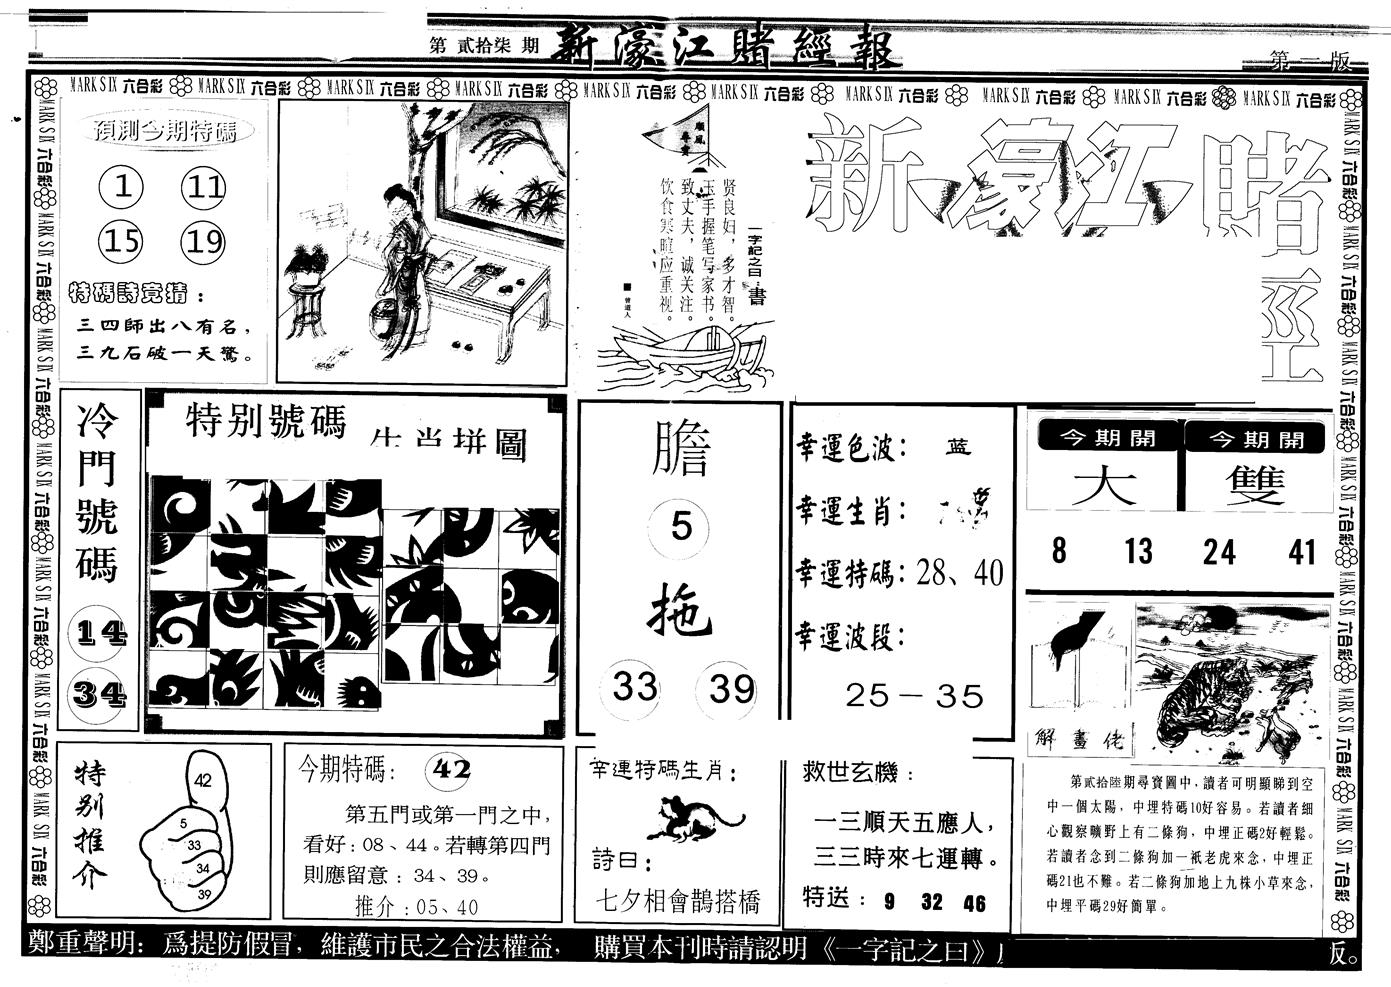 第 貳拾柒 期 新濠江賭經報
第一版
MARK SIX 六合彩 MARK SIX 六合彩 MARK SIX 六合彩 MARK SIX 六合彩 MARK SIX 六合彩 MARK SIX 六合彩 MARK SIX 六合彩 MARK SIX 六合彩 MARK SIX 六合彩 MARK SIX 六合彩
預測今期特碼
1 11
15 19
特碼詩竞猜：
三四師出八有名，
三九石破一天驚。
順風
尋寶
一字記之曰：書
贤良妇，多才智。
玉手握笔写家书。
致丈夫，诚关注。
饮食寒暄应重视。
■曾道人
新濠江賭
經
冷門號碼
14
34
特别號碼
生肖拼圖
膽
5
拖
33 39
幸運色波： 蓝
幸運生肖：
幸運特碼：28、40
幸運波段：
25－35
今期開 今期開
大 雙
8 13 24 41
解畫佬
第貳拾陸期尋寶圖中，讀者可明顯睇到空
中一個太陽，中埋特碼10好容易。若讀者細
心觀察曠野上有二條狗，中埋正碼2好輕鬆。
若讀者念到二條狗加一祇老虎來念，中埋正
碼21也不難。若二條狗加地上九株小草來念，
中埋平碼29好簡單。
特别推介
42
5
33
34
39
今期特碼： 42
第五門或第一門之中，
看好：08、44。若轉第四門
則應留意：34、39。
推介：05、40
幸運特碼生肖：
詩曰：
七夕相會鵲搭橋
救世玄機：
一三順天五應人，
三三時來七運轉。
特送： 9 32 46
鄭重聲明：爲提防假冒，維護市民之合法權益， 購買本刊時請認明《一字記之曰》
版。